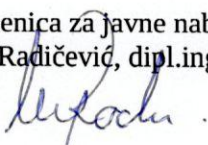 enica za javne nab
Radičević, dipl.ing